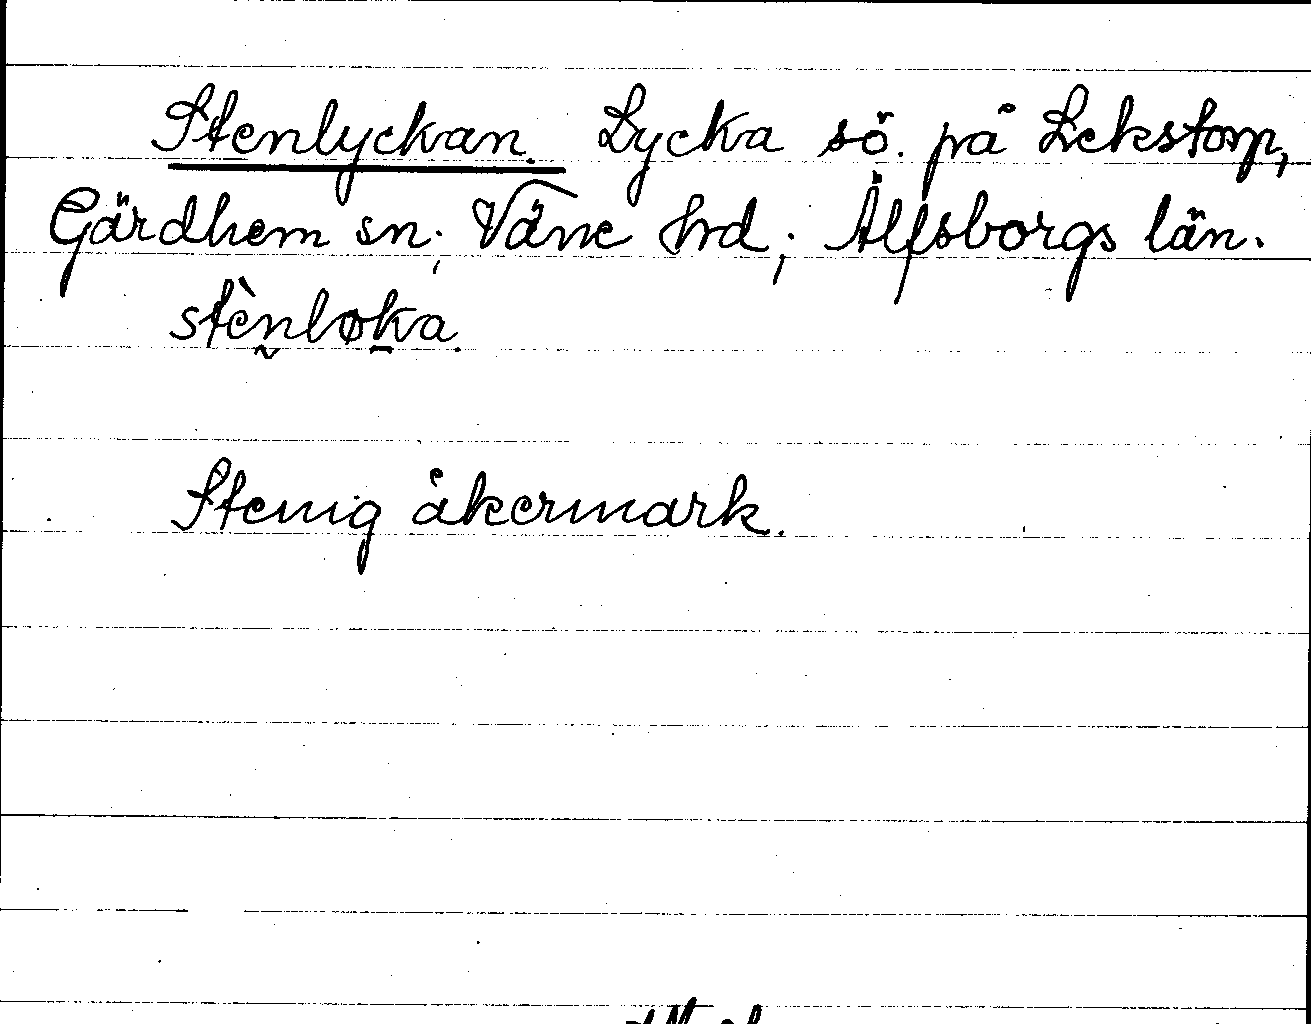 Stenlyckan. Lycka sö. på Lekstorp,
Gärdhem sn; Väne hrd; Älfsborgs län.
stènløka.
Stenig åkermark.